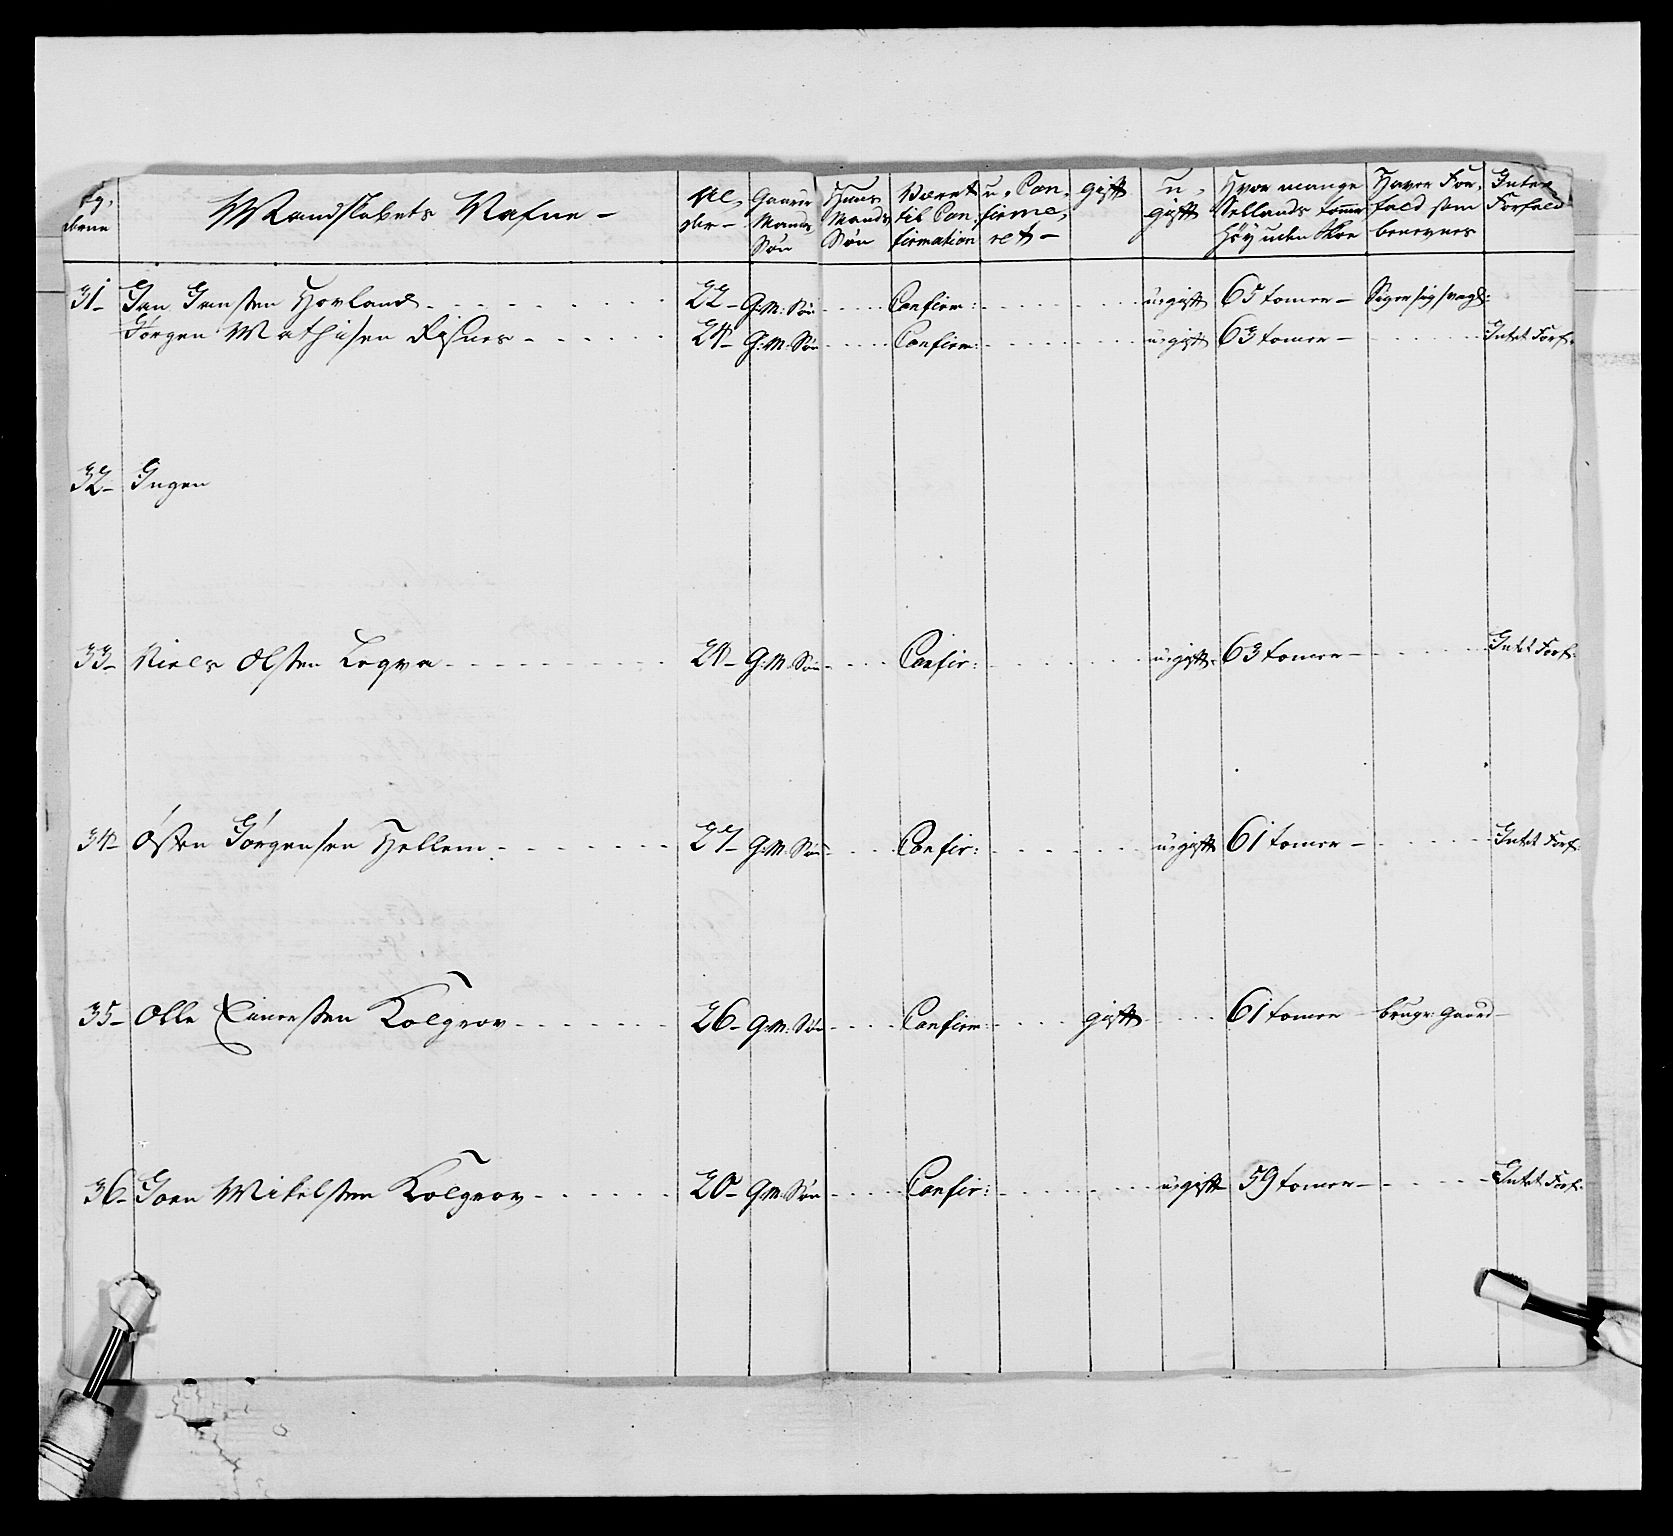 Lægdene | Mandskabets Nafne – | Al,der – | Gaard Mands Søn | Huus Mands Søn | Været til Confirmation | u, Confirmeret – | gift | u,gift | Hvor mange Sellands tomer Høy uden Skoe | Haver Forfald som benevnes | Intet Forfald
31– Jan Jansten Hovland 22– G:M: Søn Confirm: u:gift 65 tomer – Siger sig svagl:
Jørgen Mathisen Risnes 24– G:M: Søn Confirm: u:gift 63 tomer – Intet Forf:
32– Ingen
33– Niels Olsten 24– G:M: Søn Confir: u:gift 63 tomer – Intet Forf:
34– Østen Jørgensen Hellem 27– G:M: Søn Confir: u:gift 61 tomer – Intet Forf:
35– Olle Einersten Kolgrov 26– G:M: Søn Confirm: gift 61 tomer – brugr: Gaard –
36– Joen Mikelsten Kolgrov 20– G:M: Søn Confir: u:gift 59 tomer – Intet Forf: